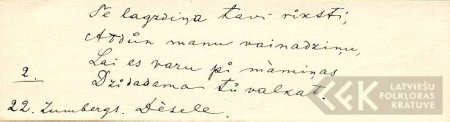 Te lagzdiņa tavi rīksti,
Atdūn manu vainadziņu,
Lai es varu pi māmiņas
2. Dzīdadama tū valkat.
22. Zumbergs. Dēsele.
LATVIEŠU
FOLKLORAS
KRĀTUVE